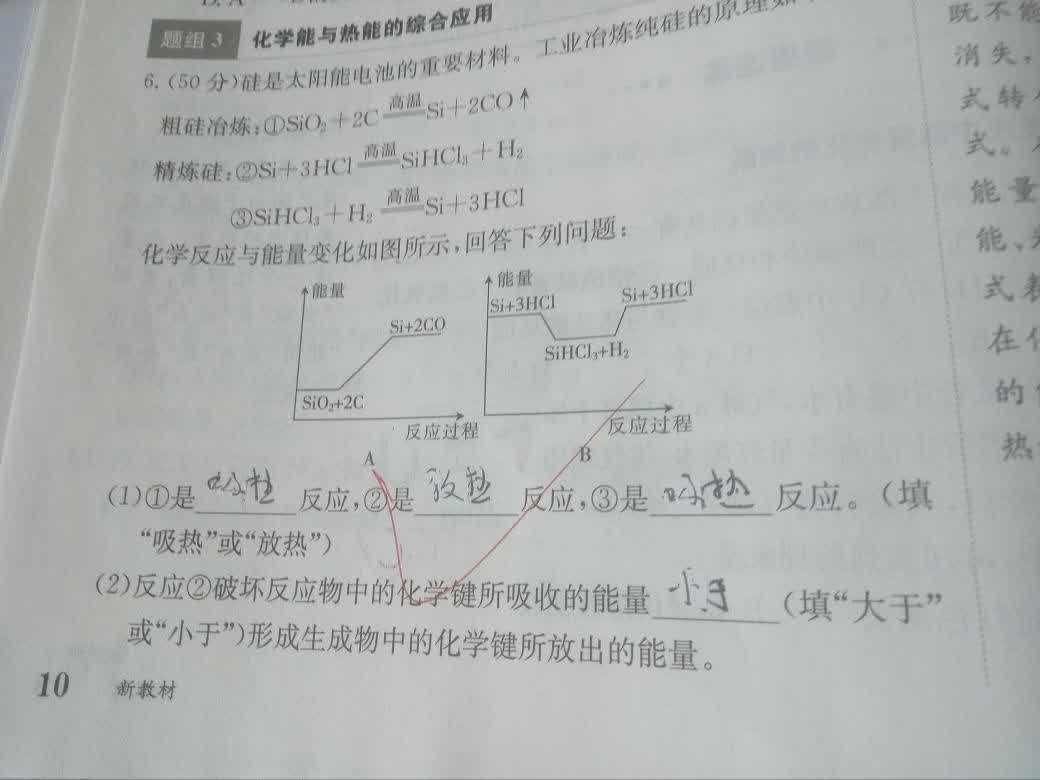 题组3 化学能与热能的综合应用
6.(50分)硅是太阳能电池的重要材料。工业冶炼纯硅的原理
粗硅冶炼:①SiO₂+2C 高温 Si+2CO↑
精炼硅:②Si+3HCl 高温 SiHCl₃+H₂
③SiHCl₃+H₂ 高温 Si+3HCl
化学反应与能量变化如图所示,回答下列问题:
能量
Si+2CO
SiO₂+2C
反应过程
A
能量
Si+3HCl
Si+3HCl
SiHCl₃+H₂
反应过程
B
(1)①是 吸热 反应,②是 放热 反应,③是 吸热 反应。(填
“吸热”或“放热”)
(2)反应②破坏反应物中的化学键所吸收的能量 小于 (填“大于”
或“小于”)形成生成物中的化学键所放出的能量。
10 新教材
既不能
消失,
式转
式。
能量
能、
式
在
的
热